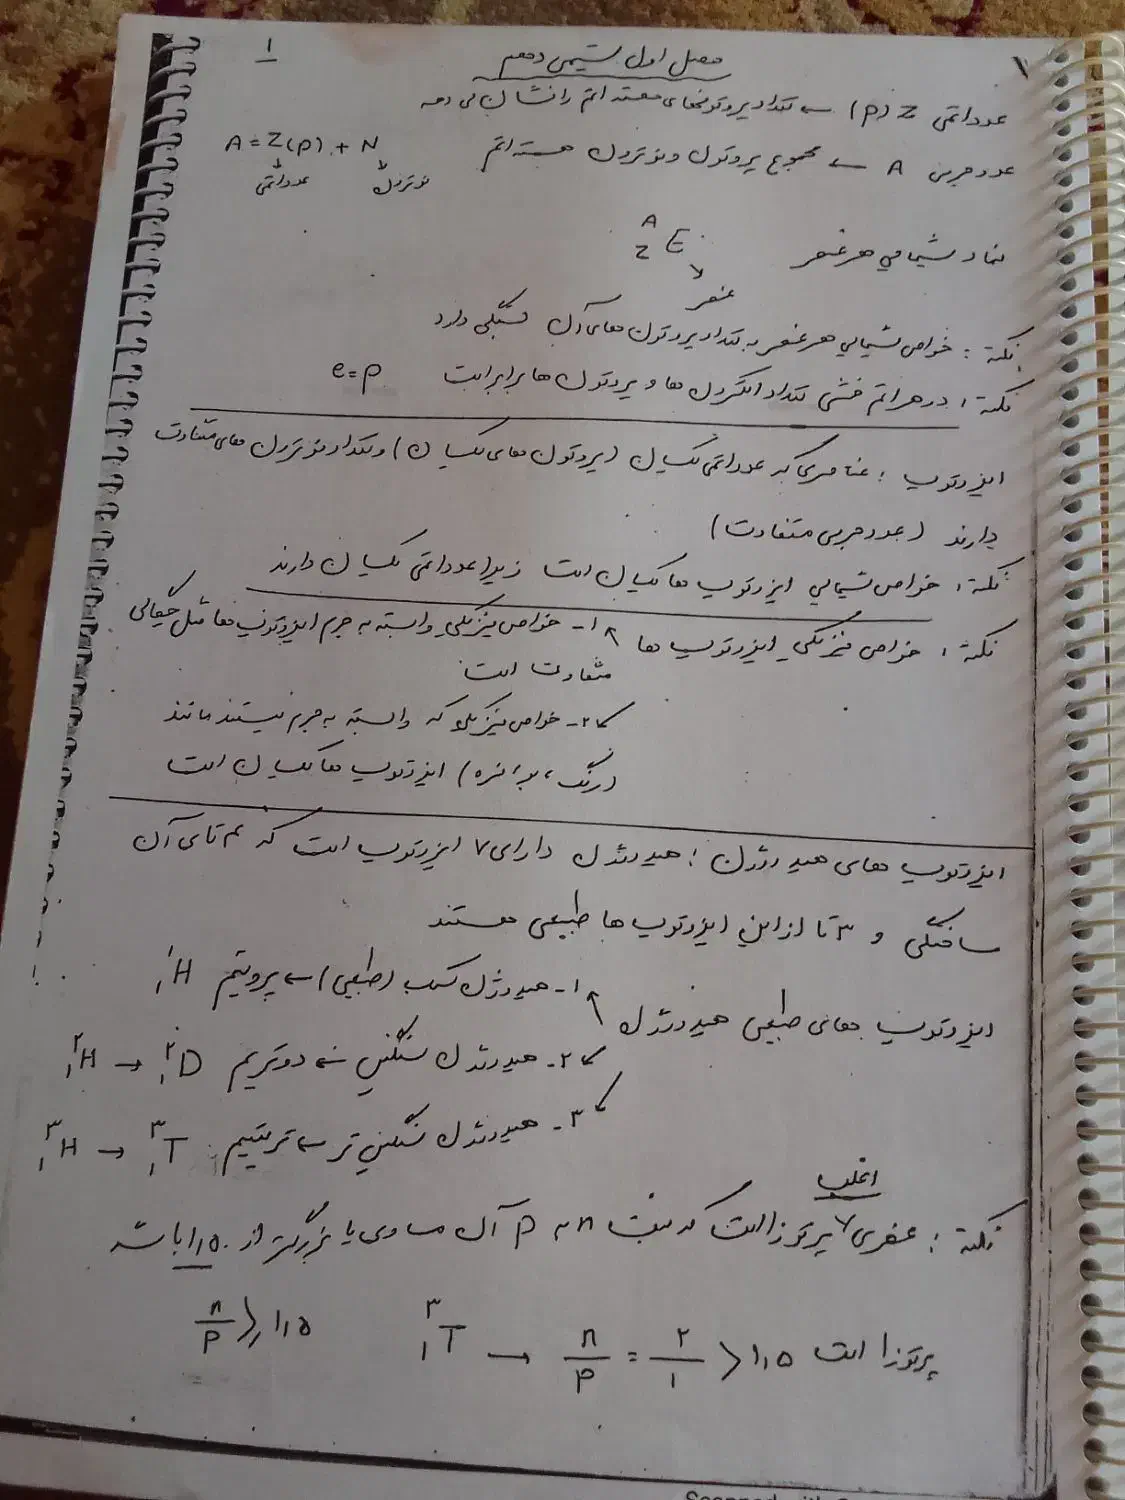 فصل اول شیمی دهم
۱
عدد اتمی Z (p) ← تعداد پروتونهای هسته اتم را نشان می دهد
عدد جرمی A ← مجموع پروتون و نوترون هسته اتم A = Z(p) + N
عدد اتمی نوترون
نماد شیمیایی هر عنصر A Z E
عنصر
نکته : خواص شیمیایی هر عنصر به تعداد پروتون های آن بستگی دارد
نکته : در هر اتم خنثی تعداد الکترون ها و پروتون ها برابر است e = p
ایزوتوپ : عناصری که عدد اتمی یکسان (پروتون های یکسان) و تعداد نوترون های متفاوت
دارند (عدد جرمی متفاوت)
نکته : خواص شیمیایی ایزوتوپ ها یکسان است زیرا عدد اتمی یکسان دارند
نکته : خواص فیزیکی ایزوتوپ ها ۱- خواص فیزیکی وابسته به جرم ایزوتوپ ها مثل چگالی
متفاوت است
۲- خواص فیزیکی که وابسته به جرم نیستند مانند
(رنگ ، بو ، مزه) ایزوتوپ ها یکسان است
ایزوتوپ های هیدروژن : هیدروژن دارای ۷ ایزوتوپ است که ۴ تای آن
ساختگی و ۳ تا از این ایزوتوپ ها طبیعی هستند
ایزوتوپ های طبیعی هیدروژن ۱- هیدروژن سبک (طبیعی) ← پروتیم ¹₁H
۲- هیدروژن سنگین ← دوتریم ²₁D ← ²₁H
۳- هیدروژن سنگین تر ← تریتیم ³₁T ← ³₁H
اغلب
نکته : عنصری پرتوزا است که نسبت n به p آن مساوی یا بزرگتر از ۱٫۵ باشد
پرتوزا است ³₁T → n/p = ۲/۱ > ۱٫۵ n/p ≥ ۱٫۵